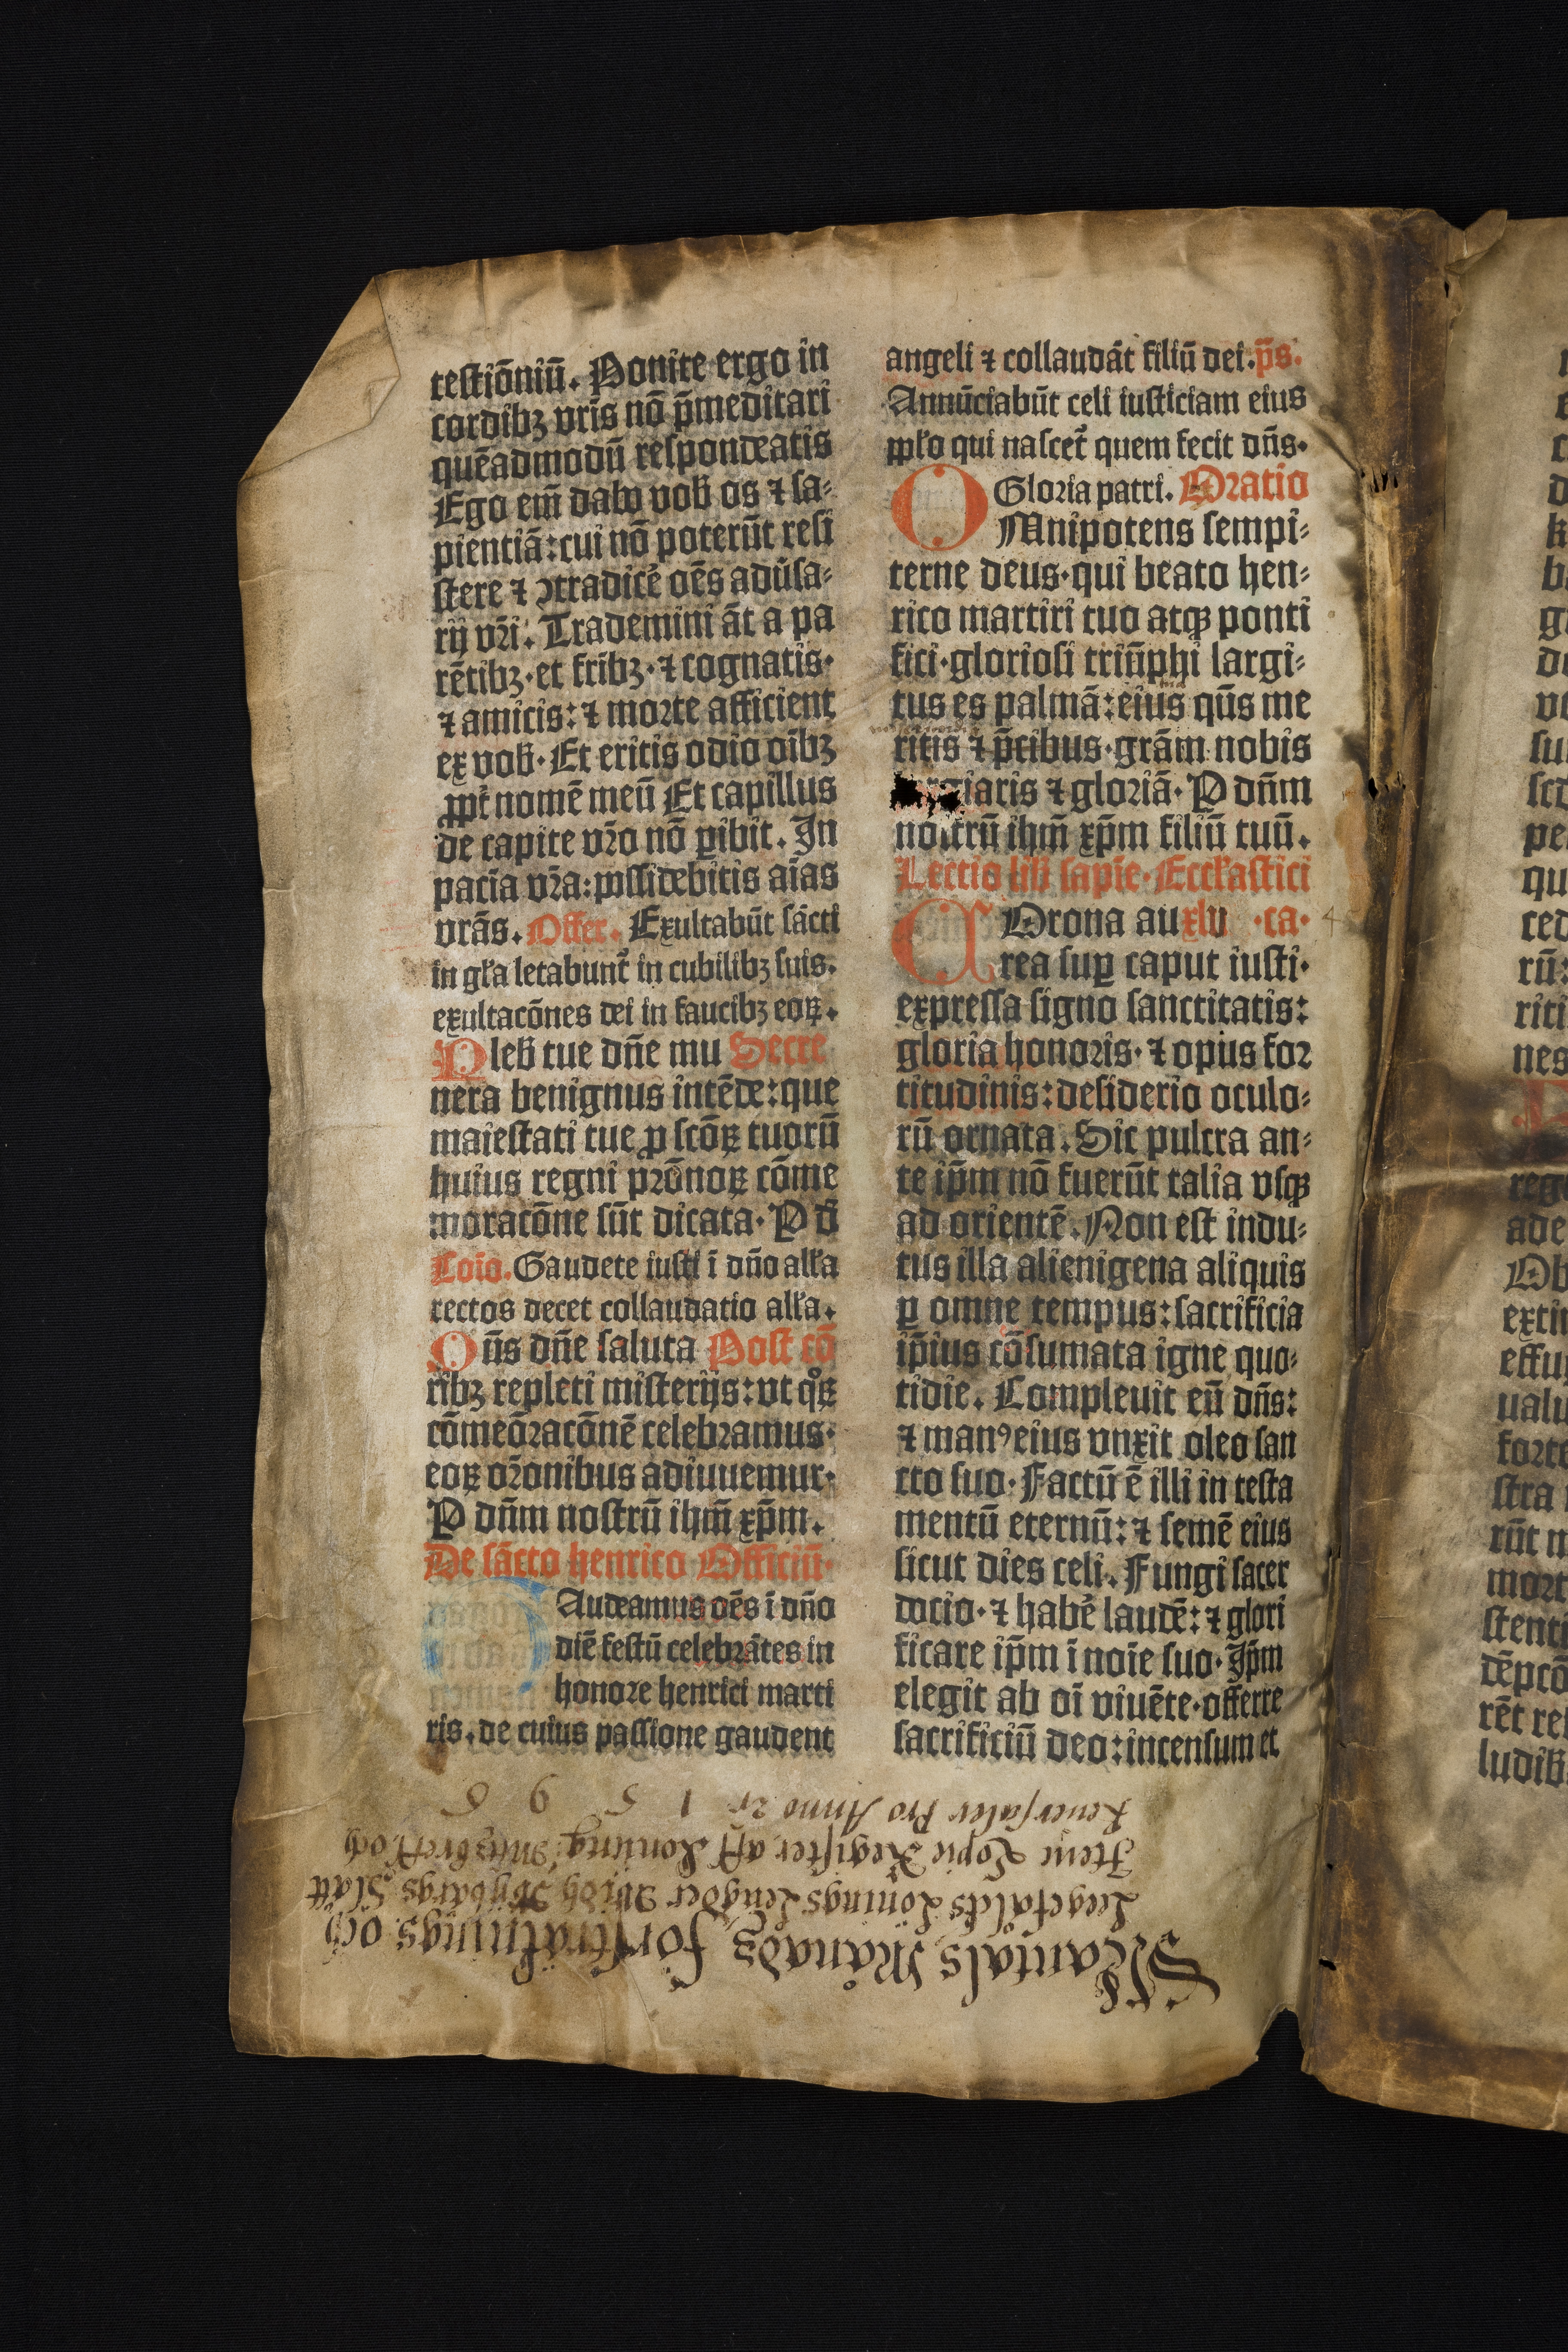 testiōniū. Ponite ergo in
cordibꝫ vr̄is nō p̄meditari
quēadmodū respondeatis
Ego em̄ dabo vob̄ os ⁊ sa⸗
pientiā: cui nō poterūt resi
stere ⁊ ꝯtradicē oēs adūsa⸗
rij vr̄i. Trademini āt a pa
rētibꝫ·et fr̄ibꝫ·⁊ cognatis·
⁊ amicis: ⁊ morte afficient
ex vob̄· Et eritis odio oībꝫ
ꝓpt̄ nomē meū Et capillus
de capite vr̄o nō ꝑibit. In
pacīa vr̄a: possidebitis aīas
vr̄ās. Offer. Exultabūt sācti
in gl̄a letabunt̄ in cubilibꝫ suis.
exultacōnes dei in faucibꝫ eoꝝ.
Pleb̄ tue dn̄e mu Secre
nera benignus intēde: que
maiestati tue ꝓ scōꝝ tuorū
huius regni pr̄ōnoꝝ cōme
moracōne sūt dicata· P d̄
Coīo. Gaudete iusti ī dn̄o all̄a
rectos decet collaudatio all̄a.
Qn̄s dn̄e saluta Post cō
ribꝫ repleti misterijs: vt qͦꝝ
cōmeōracōnē celebramus·
eoꝝ or̄onibus adiuuemur·
P dn̄m nostrū ihm̄ xp̄m.
De sācto henrico Officiū·
Audeamus oēs ī dn̄o
diē festū celebrātes in
honore henrici marti
ris. de cuius passione gaudent
angeli ⁊ collaudāt filiū dei. p̄s.
Annūciabūt celi iusticiam eius
ppl̄o qui nascet̄ quem fecit dn̄s.
Gloria patri. Oratio
OMnipotens sempi⸗
terne deus·qui beato hen⸗
rico martiri tuo atqꝫ ponti
fici·gloriosi triūphi largi⸗
tus es palmā: eius qn̄s me
ritis ⁊ p̄cibus·grām nobis
giaris ⁊ gloriā· P dn̄m
nostrū ihm̄ xp̄m filiū tuū.
Lectio lib̄ sapīe·Eccl̄astici
COrona au xlv ·ca·
rea suꝑ caput iusti·
expressa signo sanctitatis:
gloria honoris·⁊ opus for
titudinis: desiderio oculo⸗
rū ornata. Sic pulcra an⸗
te ip̄m nō fuerūt talia vsqꝫ
ad orientē. Non est indu⸗
tus illa alienigena aliquis
ꝑ omne tempus: sacrificia
ip̄ius cōsumata igne quo⸗
tidie. Compleuit eū dn̄s:
⁊ manꝰ eius vnxit oleo san
cto suo· Factū ē illi in testa
mentū eternū: ⁊ semē eius
sicut dies celi. Fungi sacer
docio·⁊ habē laudē: ⁊ glori
ficare ip̄m ī noīe suo· Ip̄m
elegit ab oī viuēte·offerre
sacrificiū deo: incensum et
Mantals Månadz förstrålnings och
Leegefålcks Lönings Lengder Widh Wijbårgs Slått
Item Copie Register aff Konung: och
Reuersaler Pro Anno 2r 1 5 9 6